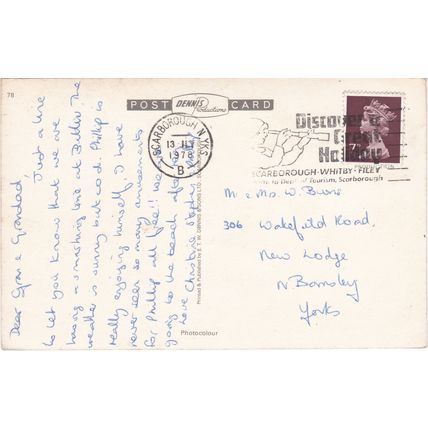 78
POST DENNIS Productions CARD
SCARBOROUGH N. YKS
13 JLY
1978
B
Discover a
Great
Holiday
SCARBOROUGH-WHITBY-FILEY
to Dept of Tourism, Scarborough
7P
Dear Gran & Grandad,
Just a line
to let you know that we are
having a smashing time at The
weather is sunny but cool. Phillip is
really enjoying himself, I have
never seen so many amusements
for Phillip all free!! We're
going to the beach after
Love Christine
Mr & Mrs W. Burns
306 Wakefield Road,
New Lodge
Nr Barnsley
Yorks
Printed & Published by E. T. W. DENNIS & SONS LTD.
Photocolour